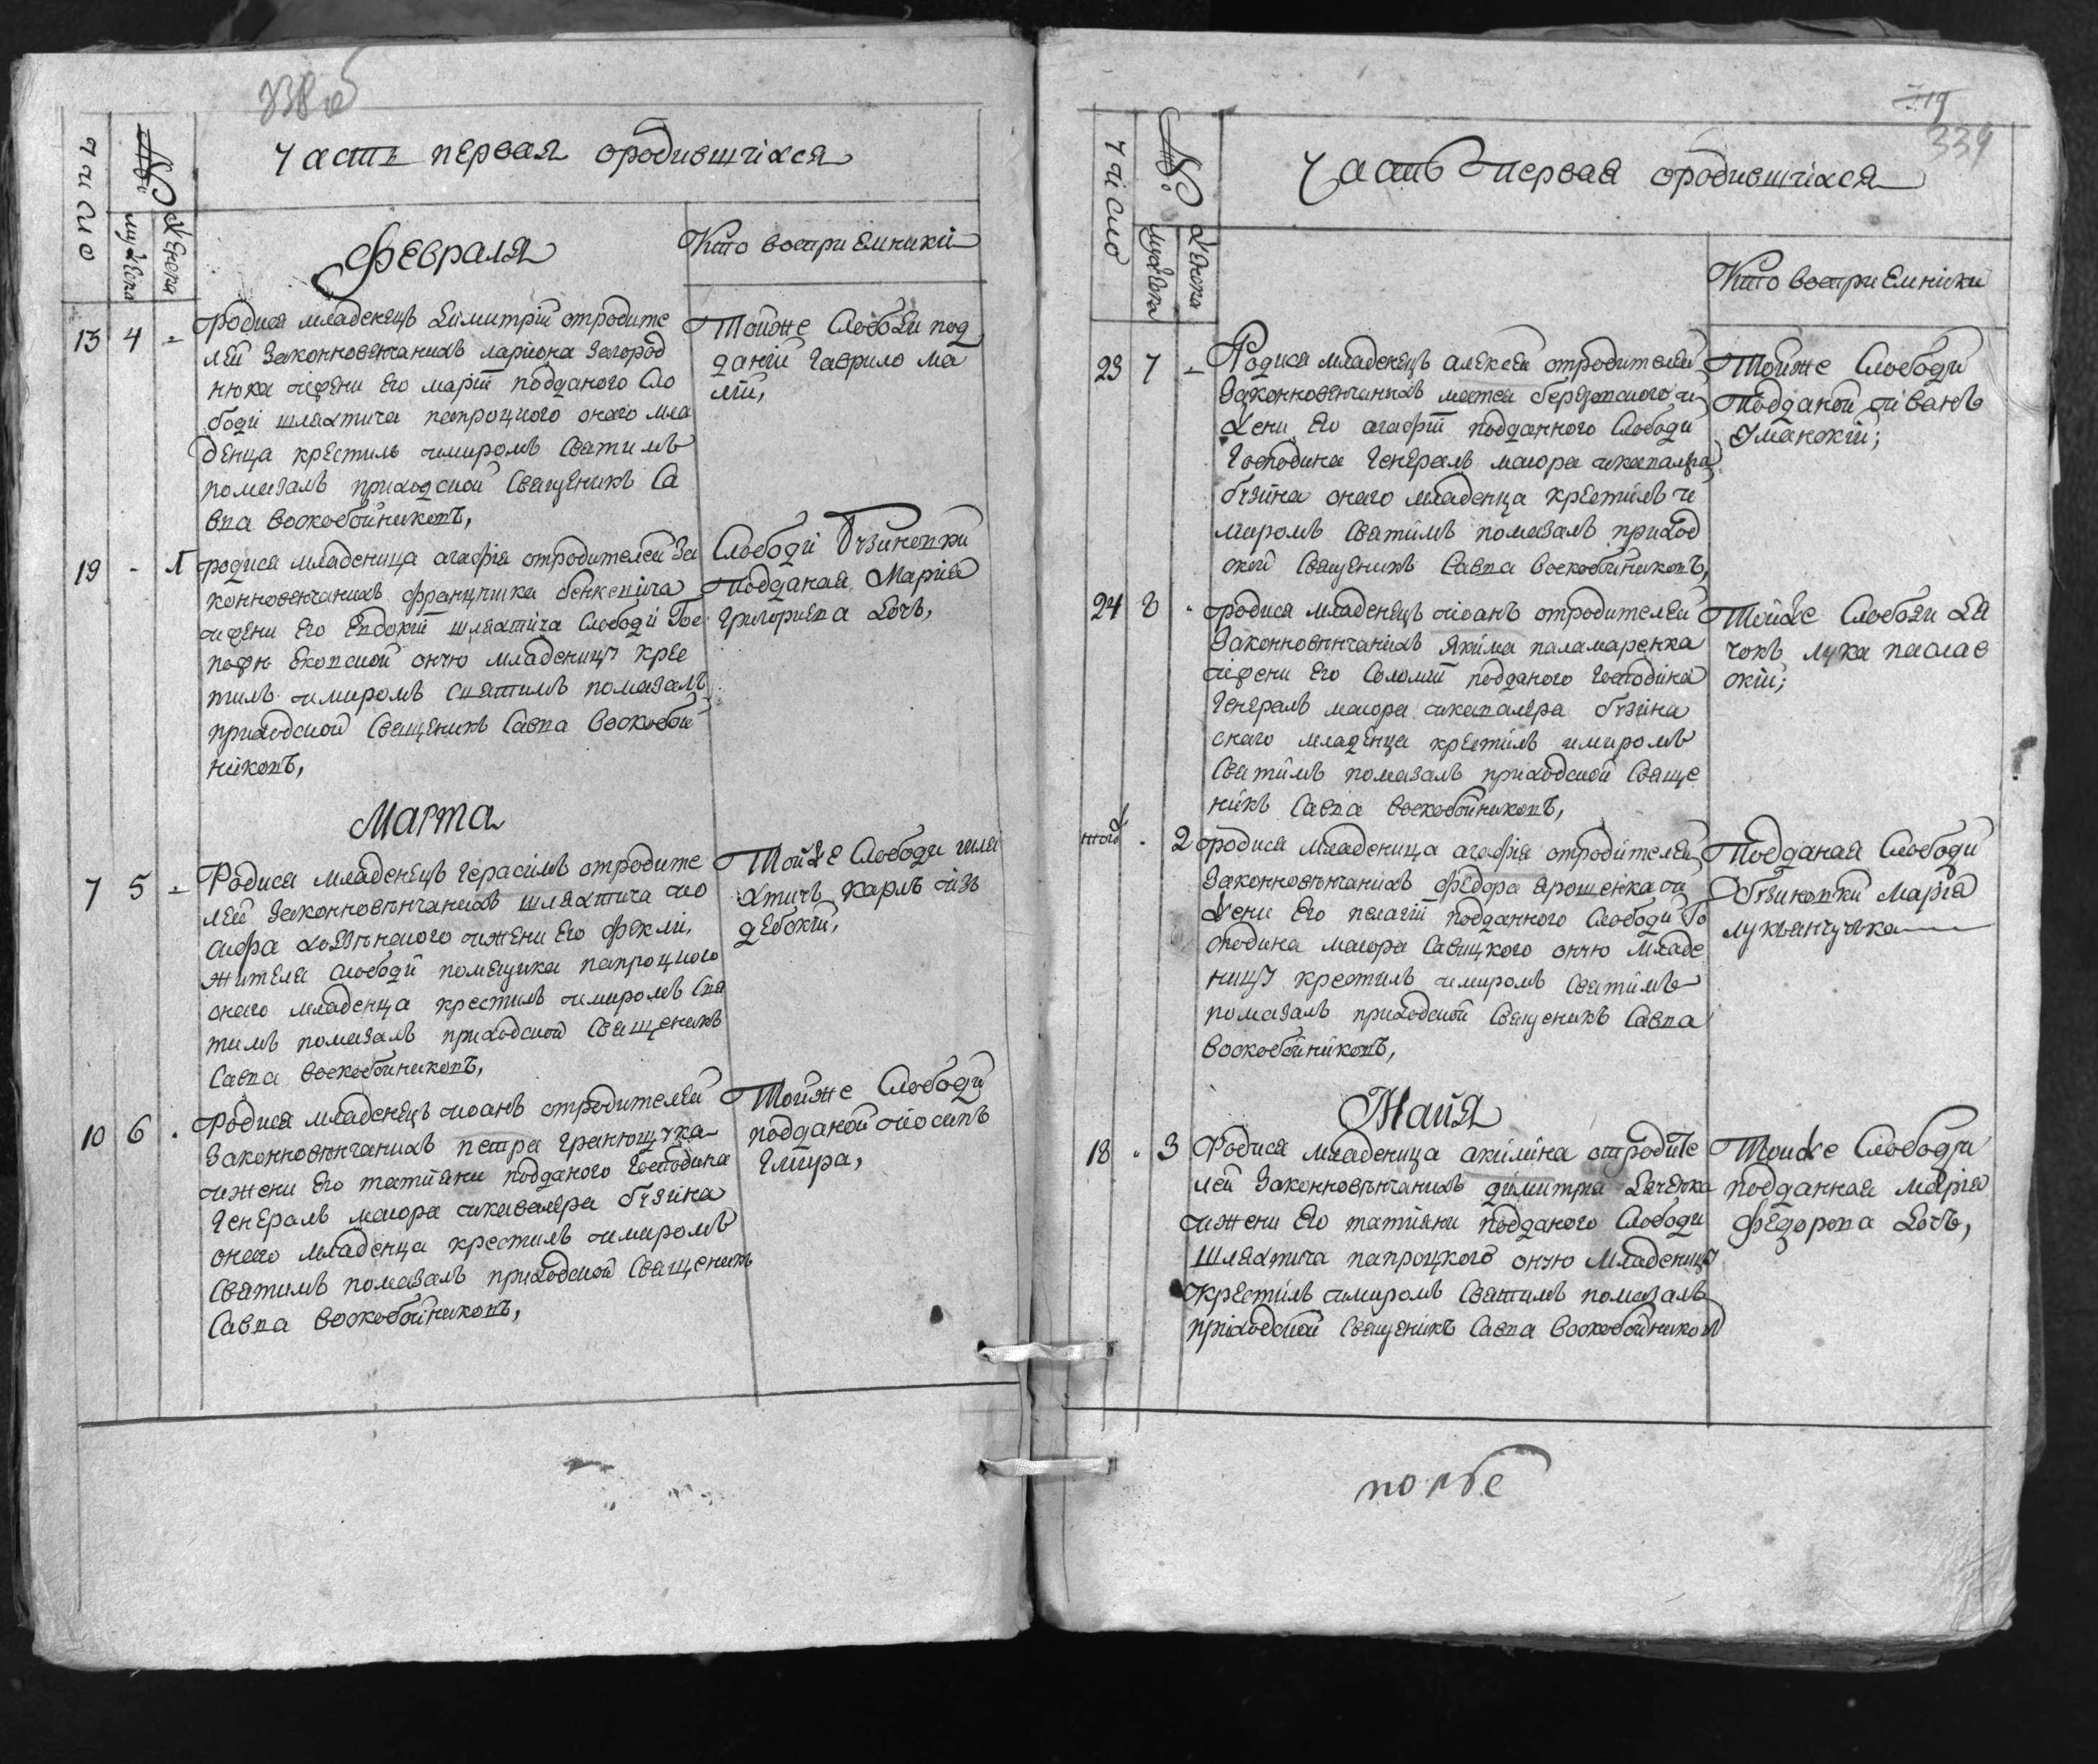 338 об
Часть первая ородившіхся
число
№
мужеска
женска
Февраля
Кто восприемники
13 4 -
Родися младенецъ Димитрій отродите
лей законновенчанихъ лариона загород
нюка ижени его маріиподданого сло
боди шляхтича папроцкого онаго мла
денца крестилъ имиромъ святимъ
помазалъ приходской священикъ Са
вва воскобойниковъ,
Тойже слободи под
даній гаврило ма
лій,
19 - 1
родися младеница агафія отродителей за
конновенчанихъ францишка
ижени его Евдокіи шляхтіча слободи Гос
оную младеницу крес
тилъ имиромъ святимъ помазалъ
приходской священикъ Савва воскобой
никовъ,
Слободи Бузиновки
подданая Марія
григориева дочъ,
Марта
7 5 -
Родися младенецъ герасимъ отродите
лей законновѣнчанихъ шляхтича ио
сифа ижени его феклі,
жителя слободи помещика папроцкого
онаго младенца крестилъ имиромъ свя
тимъ помазалъ приходской священикъ
Савва воскобойниковъ,
Тойже слободи шля
хтичъ карлъ
10 6 .
Родися младенецъ иоанъ отродителей
законновѣнчанихъ петра
ижени его татияни подданого господина
генералъ маиора икавалера бузина
онаго младенца крестилъ имиромъ
святимъ помазалъ приходской священикъ
Савва воскобойниковъ,
Тойже слободи
подданой иосипъ
339
Часть первая ородившіхся
число
№
мужеска
женска
Кто восприемники
23 7 -
Родися младенецъ алексей отродителей
законновенчанихъ матея и
жени его агафіи подданного слободи
господина генералъ маиора икавалера
бузина онаго младенца крестилъ и
миромъ святимъ помазалъ приход
ской священикъ Савва воскобойниковъ,
Тойже слободи
подданой иванъ
уманскій;
24 8 .
родися младенецъ иоанъ отродителей
законновѣнчаніхъ якима паламаренка
ижени его соломіи подданого господіна
генералъ маиора икавалера бузина
онаго младенца крестилъ имиромъ
святимъ помазалъ приходской свяще
никъ Савва воскобойниковъ,
Тойже слободи дя
чокъ лука
тогож . 2
родися младеница агафія отродителей
законновѣнчаніхъ федора ярошенка и
жени его пелагіи подданного слободи го
сподина маиора савицкого оную младе
ницу крестилъ имиромъ святимъ
помазалъ приходской священикъ Савва
воскобойниковъ,
Подданая слободи
бузиновки Марія
лукъянчучка
Майя
18 . 3
Родися младеница акиліна отродите
лей законновѣнчанихъ димитрія
ижени его татияни подданого слободи
шляхтича папроцкого оную младеницу
крестилъ имиромъ святимъ помазалъ
пріходской священикъ Савва воскобойников
Тоиже слободи
подданная марія
федорова дочъ,